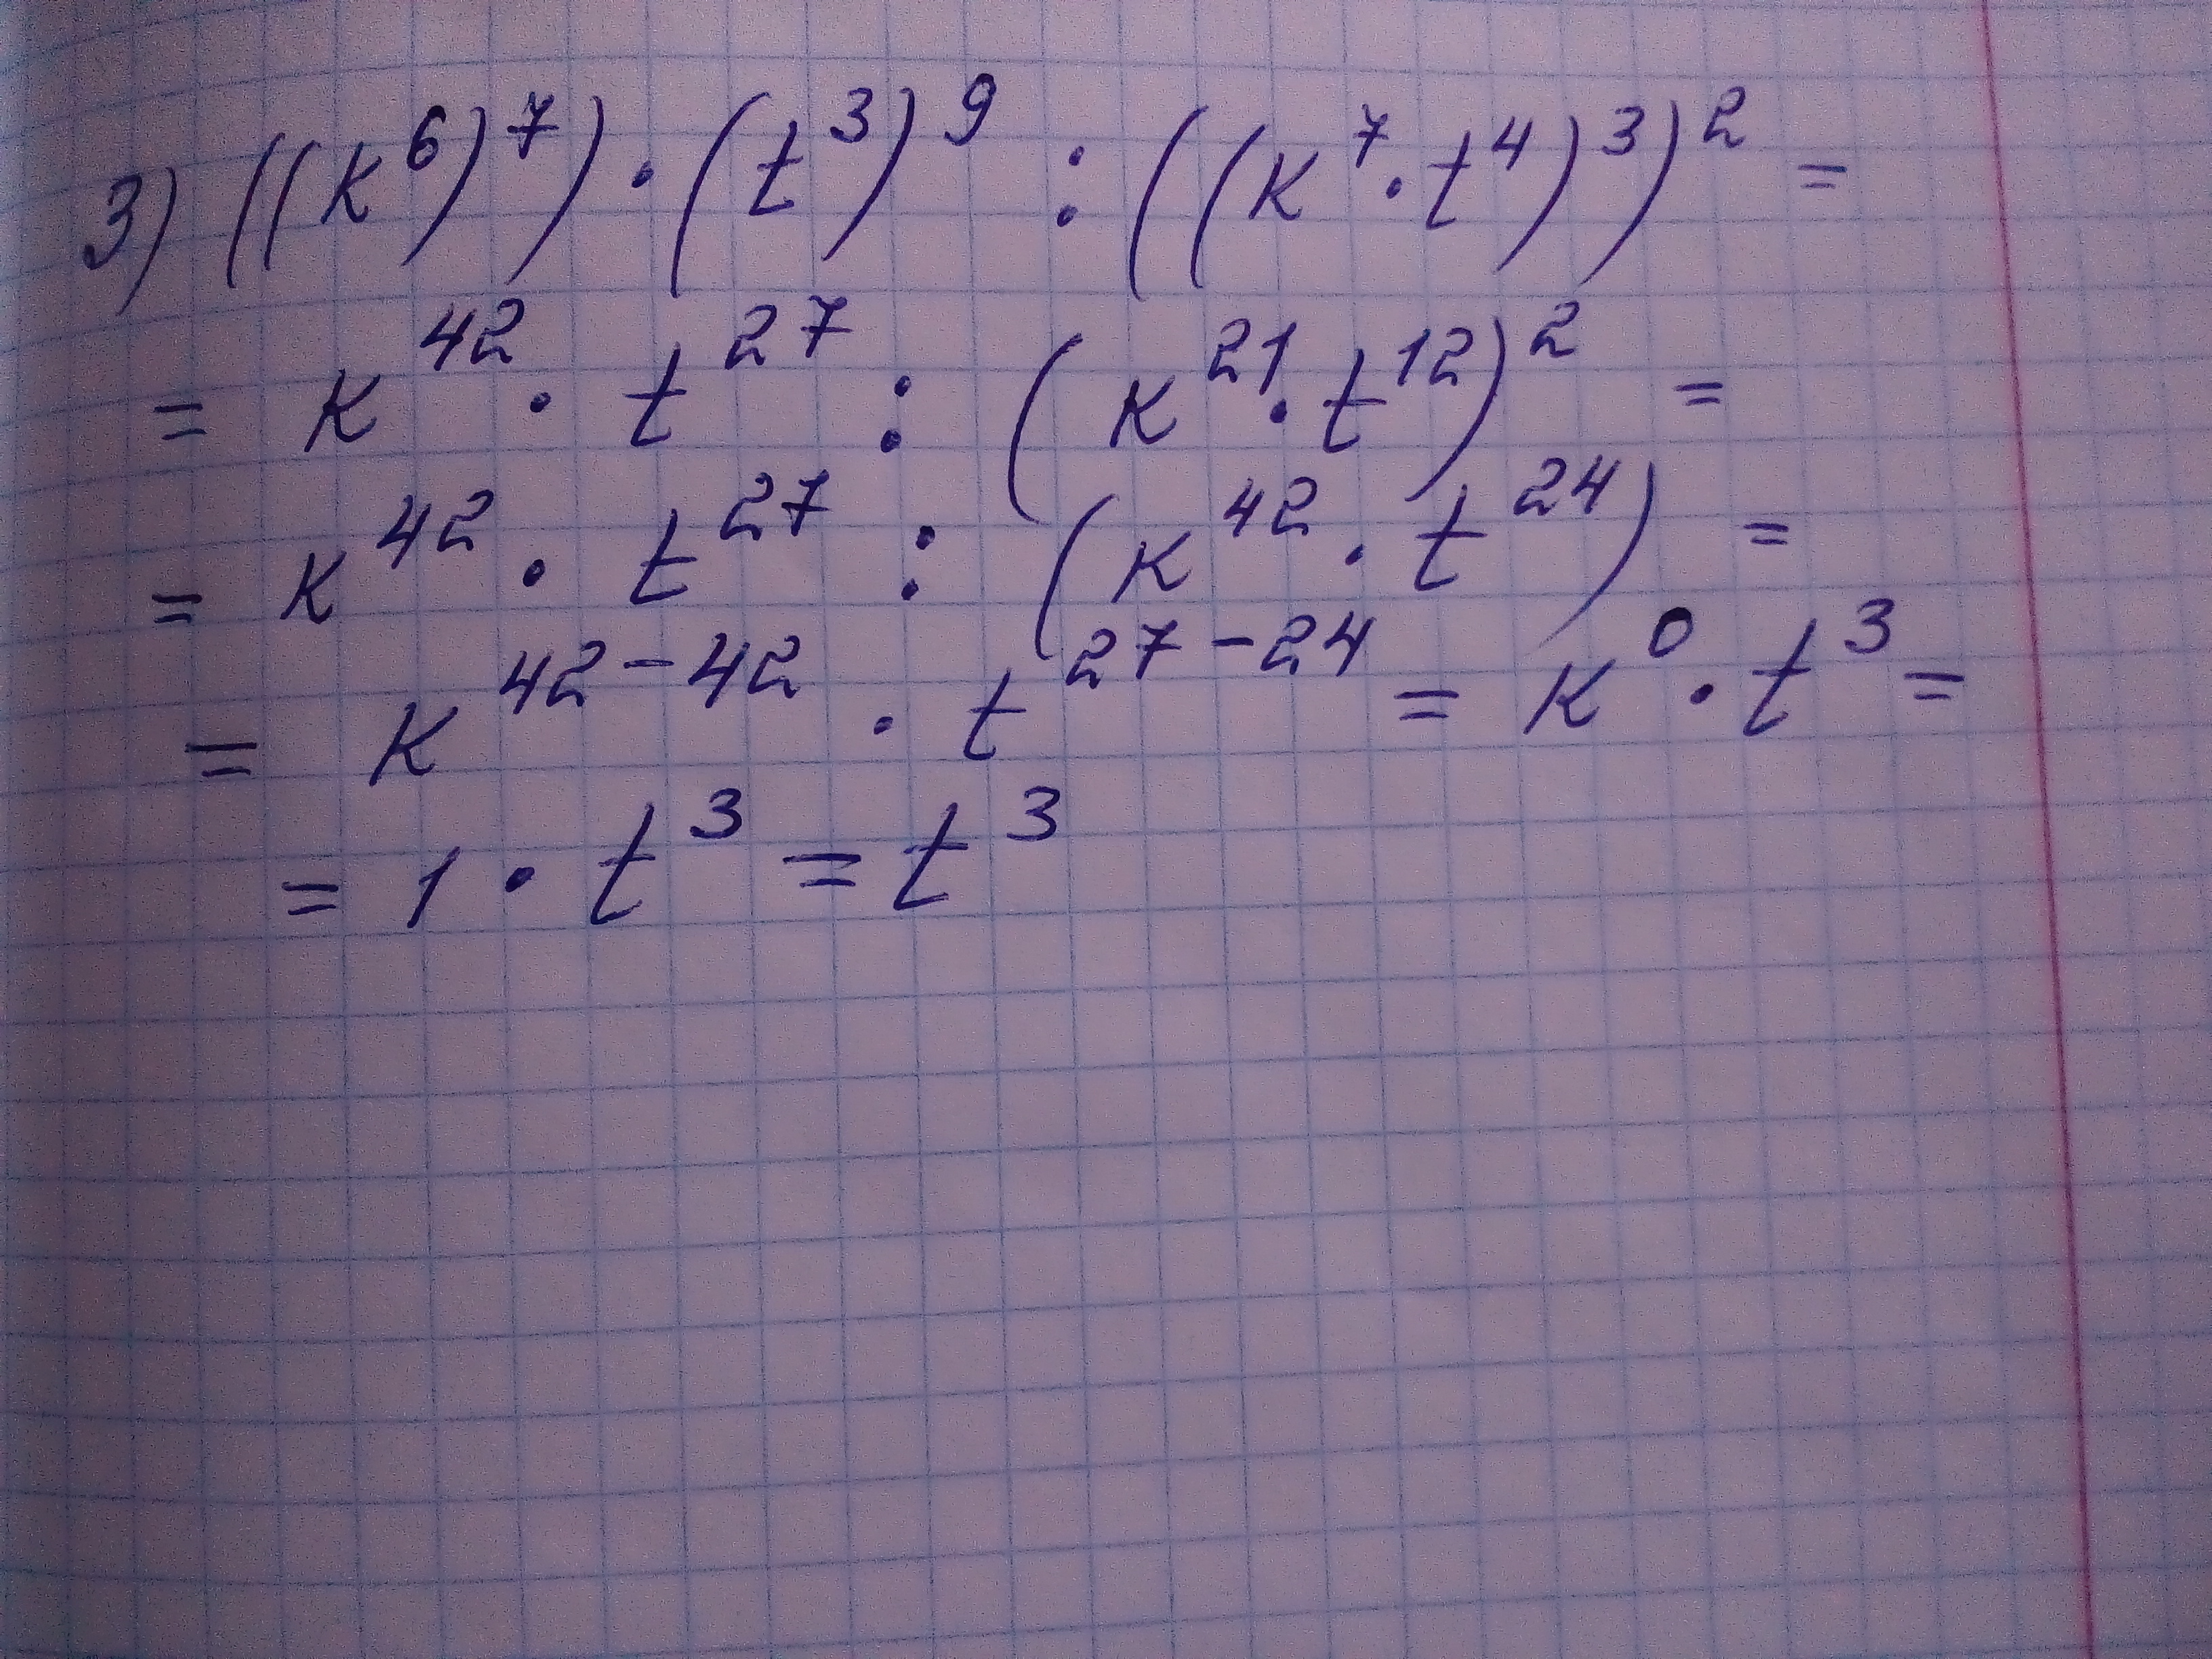 3) ((k⁶)⁷) · (t³)⁹ : ((k⁷ · t⁴)³)² =
= k⁴² · t²⁷ : (k²¹ · t¹²)² =
= k⁴² · t²⁷ : (k⁴² · t²⁴) =
= k⁴²⁻⁴² · t²⁷⁻²⁴ = k⁰ · t³ =
= 1 · t³ = t³